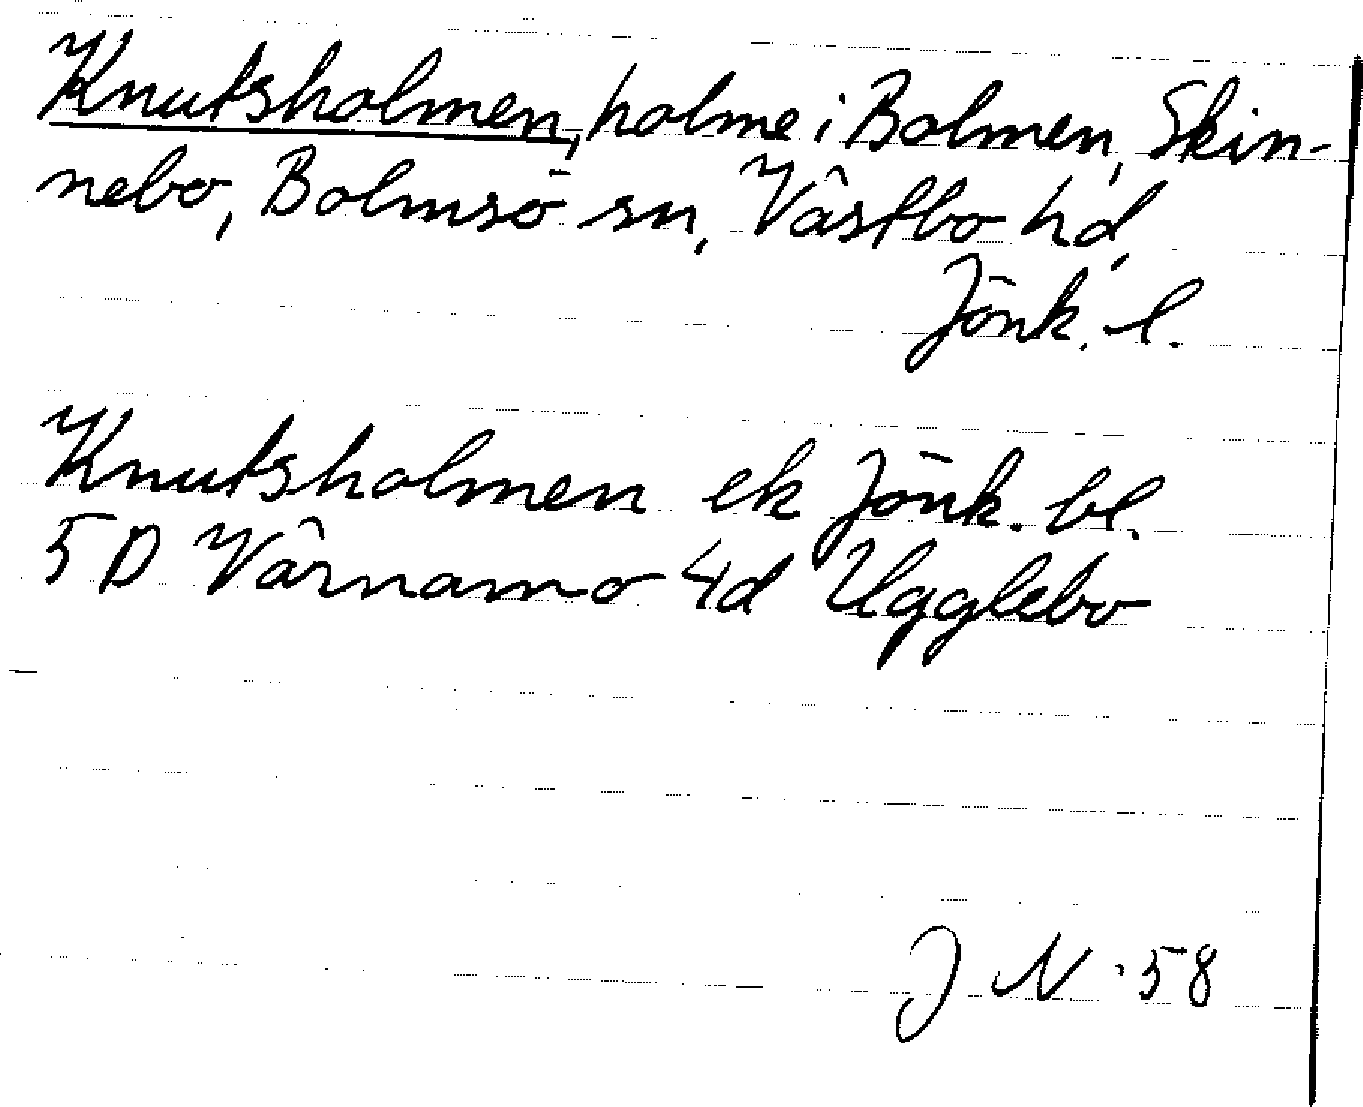 Knutsholmen, holme i Bolmen, Skin-
nebo, Bolmsö sn, Västbo hd,
Jönk. l.
Knutsholmen ek Jönk. bl.
5D Värnamo 4d Ugglebo
J N ·58